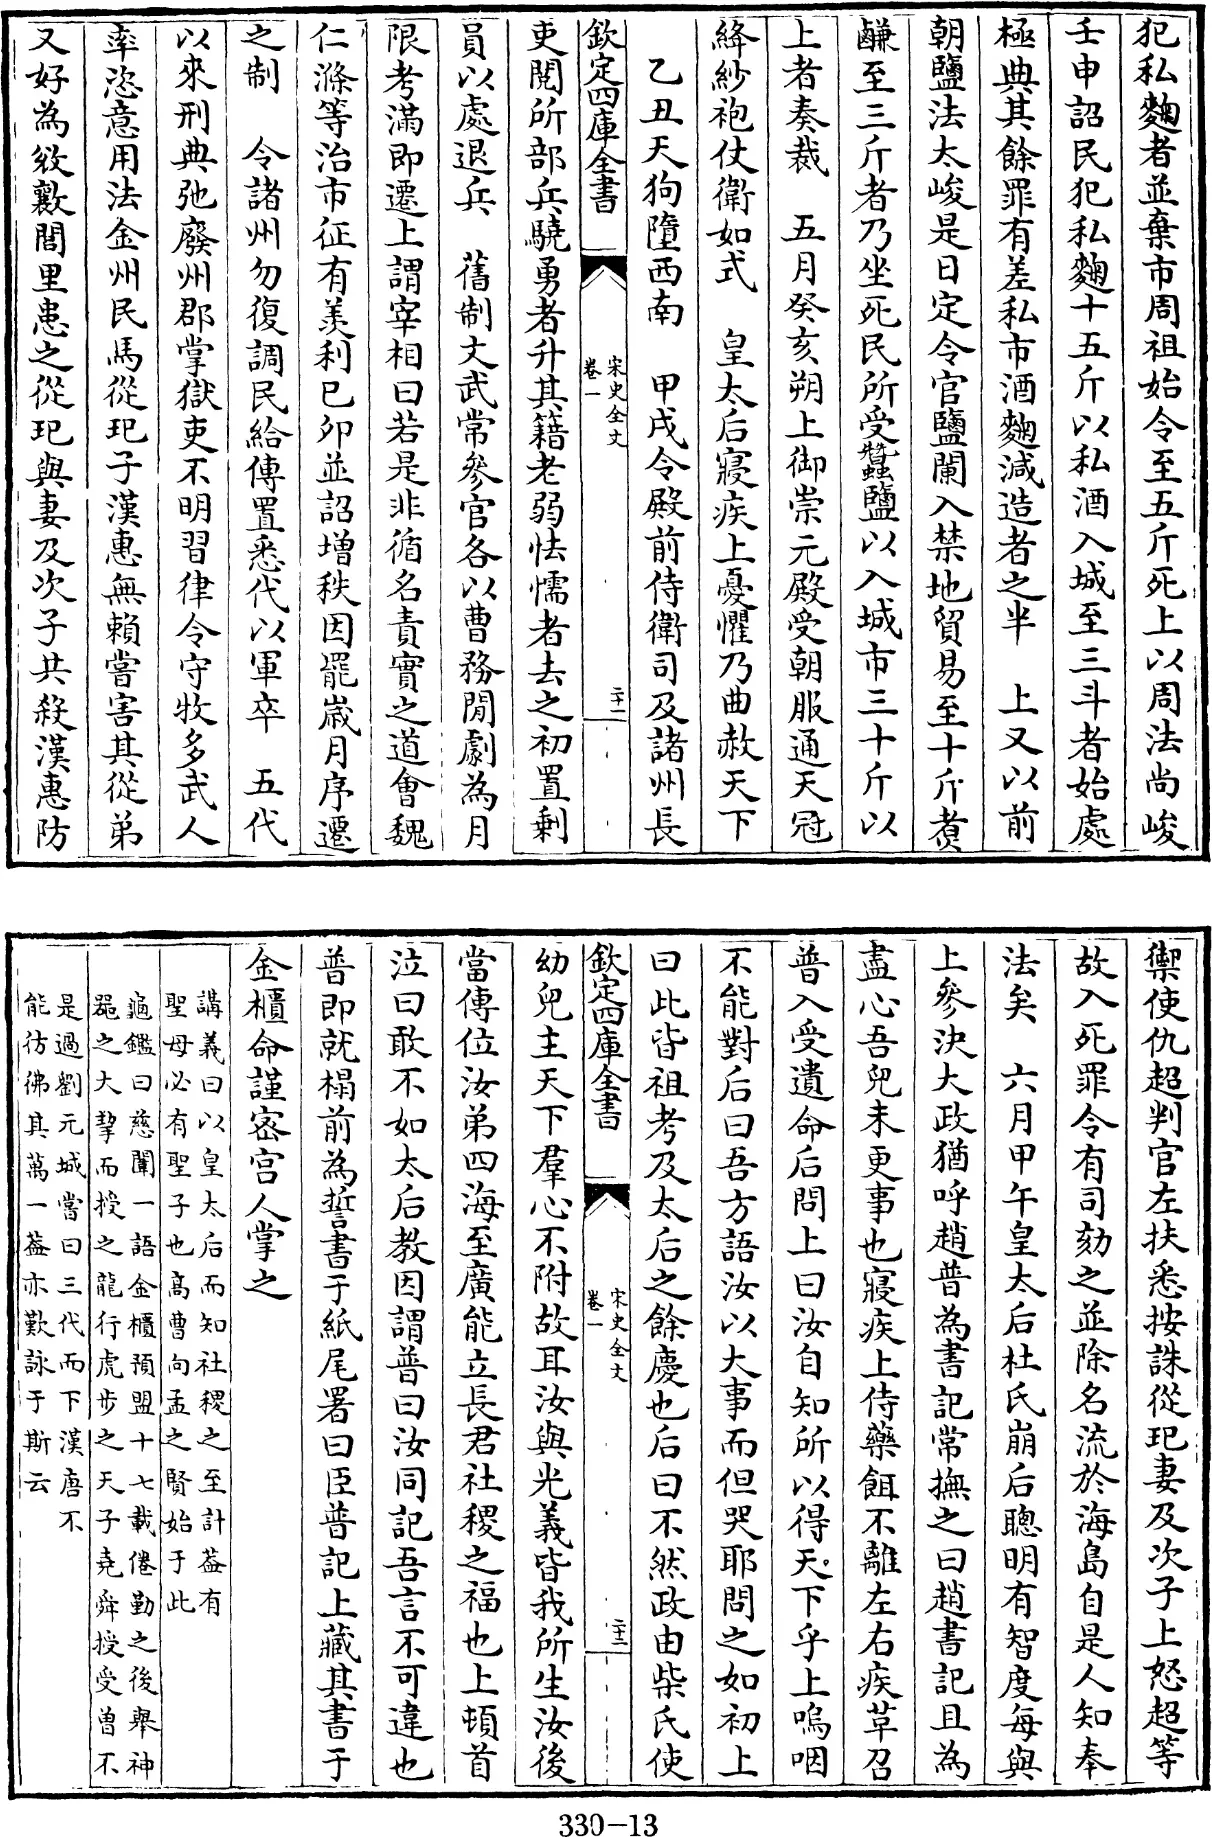 犯私麴者並棄市周祖始令至五斤死上以周法尚峻
壬申詔民犯私麴十五斤以私酒入城至三斗者始處
極典其餘罪有差私市酒麴減造者之半　上又以前
朝鹽法太峻是日定令官鹽闌入禁地貿易至十斤煑
鹻至三斤者乃坐死民所受蠶鹽以入城市三十斤以
上者奏裁　五月癸亥朔上御崇元殿受朝服通天冠
絳紗袍仗衛如式　皇太后寢疾上憂懼乃曲赦天下
乙丑天狗墮西南　甲戌令殿前侍衛司及諸州長
欽定四庫全書
宋史全文
卷一
二十一
吏閱所部兵驍勇者升其籍老弱怯懦者去之初置剰
員以處退兵　舊制文武常參官各以曹務閒劇為月
限考滿即遷上謂宰相曰若是非循名責實之道會魏
仁滌等治市征有羨利已夘並詔增秩因罷嵗月序遷
之制　令諸州勿復調民給傳置悉代以軍卒　五代
以來刑典弛廢州郡掌獄吏不明習律令守牧多武人
率恣意用法金州民馬從玘子漢惠無賴嘗害其從弟
又好為敓斁閭里患之從玘與妻及次子共殺漢惠防
禦使仇超判官左扶悉按誅從玘妻及次子上怒超等
故入死罪令有司劾之並除名流於海島自是人知奉
法矣　六月甲午皇太后杜氏崩后聰明有智度每與
上參決大政猶呼趙普為書記常撫之曰趙書記且為
盡心吾兒未更事也寢疾上侍藥餌不離左右疾革召
普入受遺命后問上曰汝自知所以得天下乎上嗚咽
不能對后曰吾方語汝以大事而但哭耶問之如初上
曰此皆祖考及太后之餘慶也后曰不然政由柴氏使
欽定四庫全書
宋史全文
卷一
二十二
幼兒主天下羣心不附故耳汝與光義皆我所生汝後
當傳位汝弟四海至廣能立長君社稷之福也上頓首
泣曰敢不如太后教因謂普曰汝同記吾言不可違也
普即就榻前為誓書于紙尾署曰臣普記上藏其書于
金櫃命謹宻宫人掌之
講義曰以皇太后而知社稷之至計葢有
聖母必有聖子也髙曹向孟之賢始于此
龜鑑曰慈闈一語金櫃預盟十七載倦勤之後舉神
器之大挈而授之龍行虎步之天子堯舜授受曽不
是過劉元城嘗曰三代而下漢唐不
能彷彿其萬一葢亦歎詠于斯云
330-13